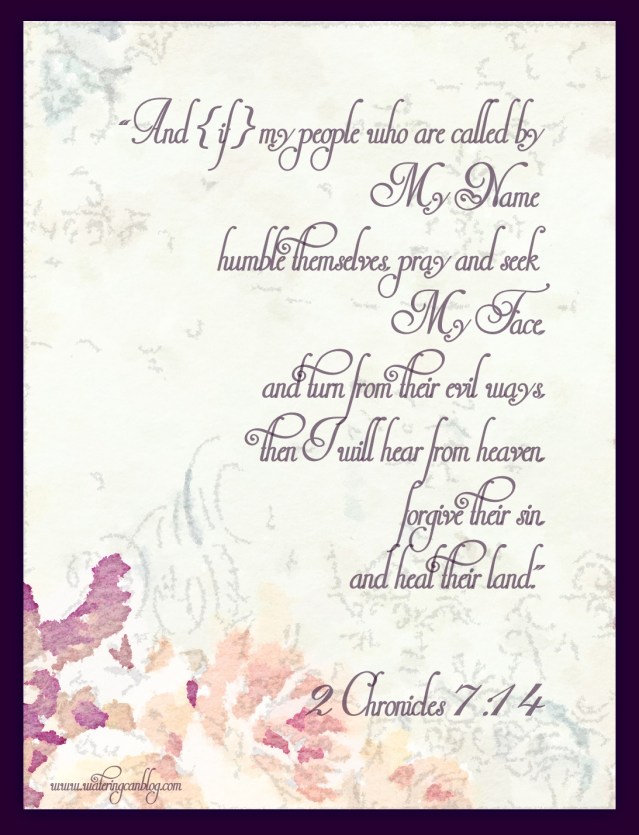 “And {if} my people who are called by
My Name
humble themselves, pray and seek
My Face,
and turn from their evil ways,
then I will hear from heaven,
forgive their sin
and heal their land.”
2 Chronicles 7:14
www.wateringcanblog.com